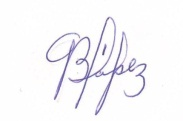 BLópez